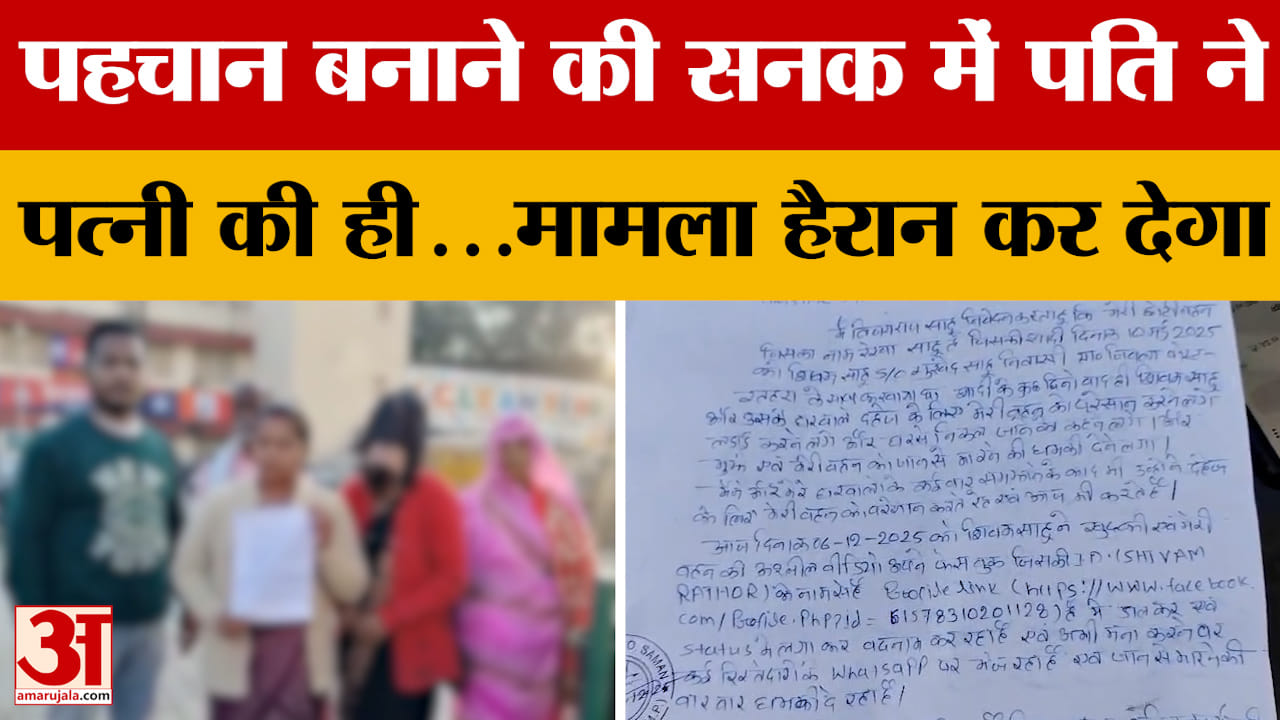 पहचान बनाने की सनक में पति ने
पत्नी की ही...मामला हैरान कर देगा
अ
amarujala.com
साहू निवेदन करता हूं कि मेरी छोटी बहन
जिसका नाम रेखा साहू है जिसकी शादी दिनांक 10 मई 2025
को शिवम साहू S/O साहू निवासी
के साथ शादी के कुछ दिनों बाद ही शिवम साहू
और उसके घरवाले दहेज के लिए मेरी बहन को परेसान करने लगे
लड़ाई करने लगे और घर से निकल जाने को कहने लगे।
एवं मेरी बहन को जान से मारने की धमकी देने लगा।
मेरे घरवालों के कई बार समझाने के बाद भी दहेज
के लिए मेरी बहन को परेशान करते रहे एवं आज भी करते हैं।
आज दिनांक 06-12-2025 को शिवम साहू ने खुद की एवं मेरी
बहन की अश्लील वीडियो अपने फेसबुक जिसकी I.D. (SHIVAM
RATHOR) के नाम से है link (https://www.facebook.
com/Profile.Php?id=61578310201128) है में डालकर एवं
status में लगाकर बदनाम कर रहा है एवं अभी मना करने पर
कई रिश्तेदारों के Whatsapp पर भेज रहा है एवं जान से मारने की
बार बार धमकी दे रहा है।